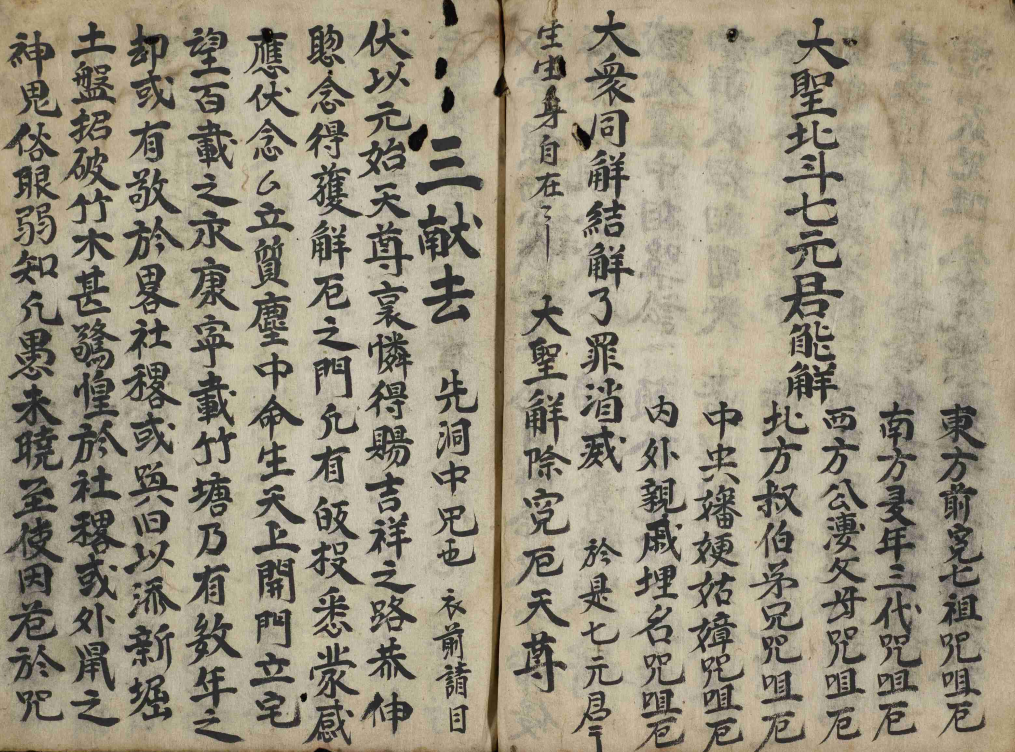 東方前寃七祖咒咀厄
南方妟年三代咒咀厄
大聖北斗七元君能觧
西方公㜢父母咒咀厄
北方叔伯苐兄咒咀厄
中央嬸㛐姑嫜咒咀厄
內外親戚埋名咒咀厄
大衆同觧結觧了罪消滅
於是七元君
生生身自在
大聖觧除寃厄天尊
三献去
先洞中咒也
衣前請目
伏以元始天尊哀憐得賜吉祥之路恭伸
聦念得蒦觧厄之門凢有皈投悉蒙感
應伏念厶立質塵中命生天上開門立宅
望百載之永康寜載竹塘乃有数年之
却或有敬於畧社稷或與旧以添新堀
土盤招破竹木甚驚惶於社稷或外鼡之
神鬼俗眼弱知凢愚未曉至使因苍於咒